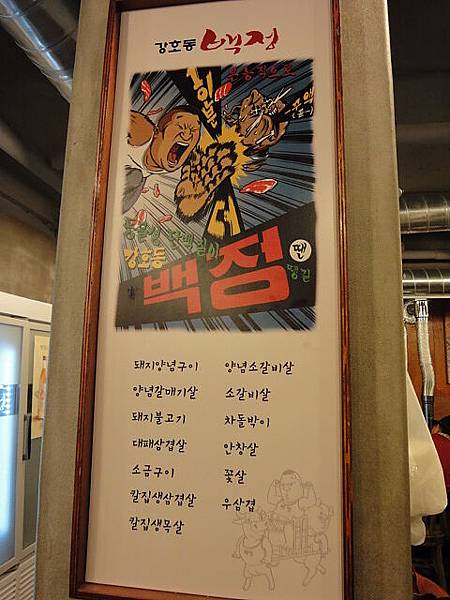 강호동 백정
강호동
백정
돼지양념구이
양념갈매기살
돼지불고기
대패삼겹살
소금구이
칼집생삼겹살
칼집생목살
양념소갈비살
소갈비살
차돌박이
안창살
꽃살
우삼겹